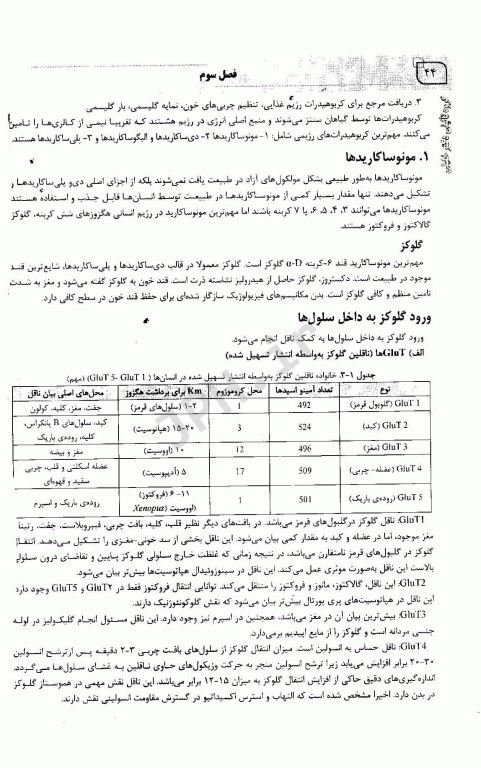 ۴۴
فصل سوم
۳. دریافت مرجع برای کربوهیدرات رژیم غذایی، تنظیم چربی‌های خون، نمایه گلیسمی، بار گلیسمی
کربوهیدرات‌ها توسط گیاهان سنتز می‌شوند و منبع اصلی انرژی در رژیم هستند که تقریبا نیمی از کالری‌ها را تامین
می‌کنند. مهم‌ترین کربوهیدرات‌های رژیمی شامل: ۱- مونوساکاریدها ۲- دی‌ساکاریدها و الیگوساکاریدها و ۳- پلی‌ساکاریدها هستند.
۱. مونوساکاریدها
مونوساکاریدها به‌طور طبیعی بشکل مولکول‌های آزاد در طبیعت یافت نمی‌شوند بلکه از اجزای اصلی دی‌و پلی‌ساکاریدها را
تشکیل می‌دهند. تنها مقدار بسیار کمی از مونوساکاریدها در طبیعت توسط انسان‌ها قابل جذب و استفاده هستند
مونوساکاریدها می‌توانند ۳، ۴، ۵، ۶، یا ۷ کربنه باشند اما مهم‌ترین مونوساکارید در رژیم انسانی هگزوزهای شش کربنه، گلوکز
گالاکتوز و فروکتوز هستند.
گلوکز
مهم‌ترین مونوساکارید قند ۶-کربنه α-D گلوکز است. گلوکز معمولا در قالب دی‌ساکاریدها و پلی‌ساکاریدها، شایع‌ترین قند
موجود در طبیعت است. دکستروز، گلوکز حاصل از هیدرولیز نشاسته ذرت است. قند خون به گلوکز گفته می‌شود و مغز به شدت
تامین منظم و کافی گلوکز است. بدن مکانیسم‌های فیزیولوژیک سازگار شده‌ای برای حفظ قند خون در سطح کافی دارد.
ورود گلوکز به داخل سلول‌ها
ورود گلوکز به داخل سلول‌ها به کمک ناقل انجام می‌شود.
الف) GluTها (ناقلین گلوکز به‌واسطه انتشار تسهیل شده)
جدول ۱-۳. خانواده ناقلین گلوکز به‌واسطه انتشار تسهیل شده در انسان‌ها ( GluT 5- GluT 1) (مهم)
نوع تعداد آمینو اسیدها محل کروموزوم Km برای برداشت هگزوز محل‌های اصلی بیان ناقل
GluT 1 (گلوبول قرمز) 492 1 ۱-۲ (سلول‌های قرمز) جفت، مغز، کلیه، کولون
GluT 2 (کبد) 524 3 ۱۵-۲۰ (هپاتوسیت) کبد، سلول‌های B پانکراس، کلیه، روده‌ی باریک
GluT 3 (مغز) 496 12 ۱۰ (اووسیت) مغز و بیضه
GluT 4 (عضله- چربی) 509 17 ۵ (آدیپوسیت) عضله اسکلتی و قلب، چربی سفید و قهوه‌ای
GluT 5 (روده‌ی باریک) 501 1 ۶-۱۱ (فروکتوز) (اووسیت Xenopus) روده‌ی باریک و اسپرم
GluT1: ناقل گلوکز درگلبول‌های قرمز می‌باشد. در بافت‌های دیگر نظیر قلب، کلیه، بافت چربی، فیبروبلاست، جفت، رتینا
مغز موجود، اما در عضله و کبد به مقدار کمی بیان می‌شود. این ناقل بخشی از سد خونی-مغزی را تشکیل می‌دهد. انتقال
گلوکز در گلبول‌های قرمز نامتقارن می‌باشد، در نتیجه زمانی که غلظت خارج سلولی گلوکز پایین و تقاضای درون سلولی
بالاست این ناقل به‌صورت موثری عمل می‌کند. این ناقل در سینوزوئیدال هپاتوسیت‌ها بیش‌تر بیان می‌شود.
GluT2: این ناقل، گالاکتوز، مانوز و فروکتوز را منتقل می‌کند. توانایی انتقال فروکتوز فقط در GluT۲ و GluT5 وجود دارد
این ناقل در هپاتوسیت‌های پری پورتال بیش‌تر بیان می‌شود که نقش گلوکونئوژنیک دارند.
GluT3: بیش‌ترین بیان آن در مغز می‌باشد، همچنین در اسپرم نیز وجود دارد. این ناقل مسئول انجام گلیکولیز در لوله
جنسی مردانه است و گلوکز را از مایع اپیدیم برمی‌دارد.
GluT4: ناقل حساس به انسولین است. میزان انتقال گلوکز از سلول‌های بافت چربی ۲-۳ دقیقه پس ازترشح انسولین
۲۰-۳۰ برابر افزایش می‌یابد زیرا ترشح انسولین منجر به حرکت وزیکول‌های حاوی ناقلین به غشای سلول‌ها می‌گردد.
اندازه‌گیری‌های دقیق حاکی از افزایش انتقال گلوکز به میزان ۱۲-۱۵ برابر می‌باشد. این ناقل نقش مهمی در هموستاز گلوکز
در بدن دارد. اخیرا مشخص شده است که التهاب و استرس اکسیداتیو در گسترش مقاومت انسولینی نقش دارند.